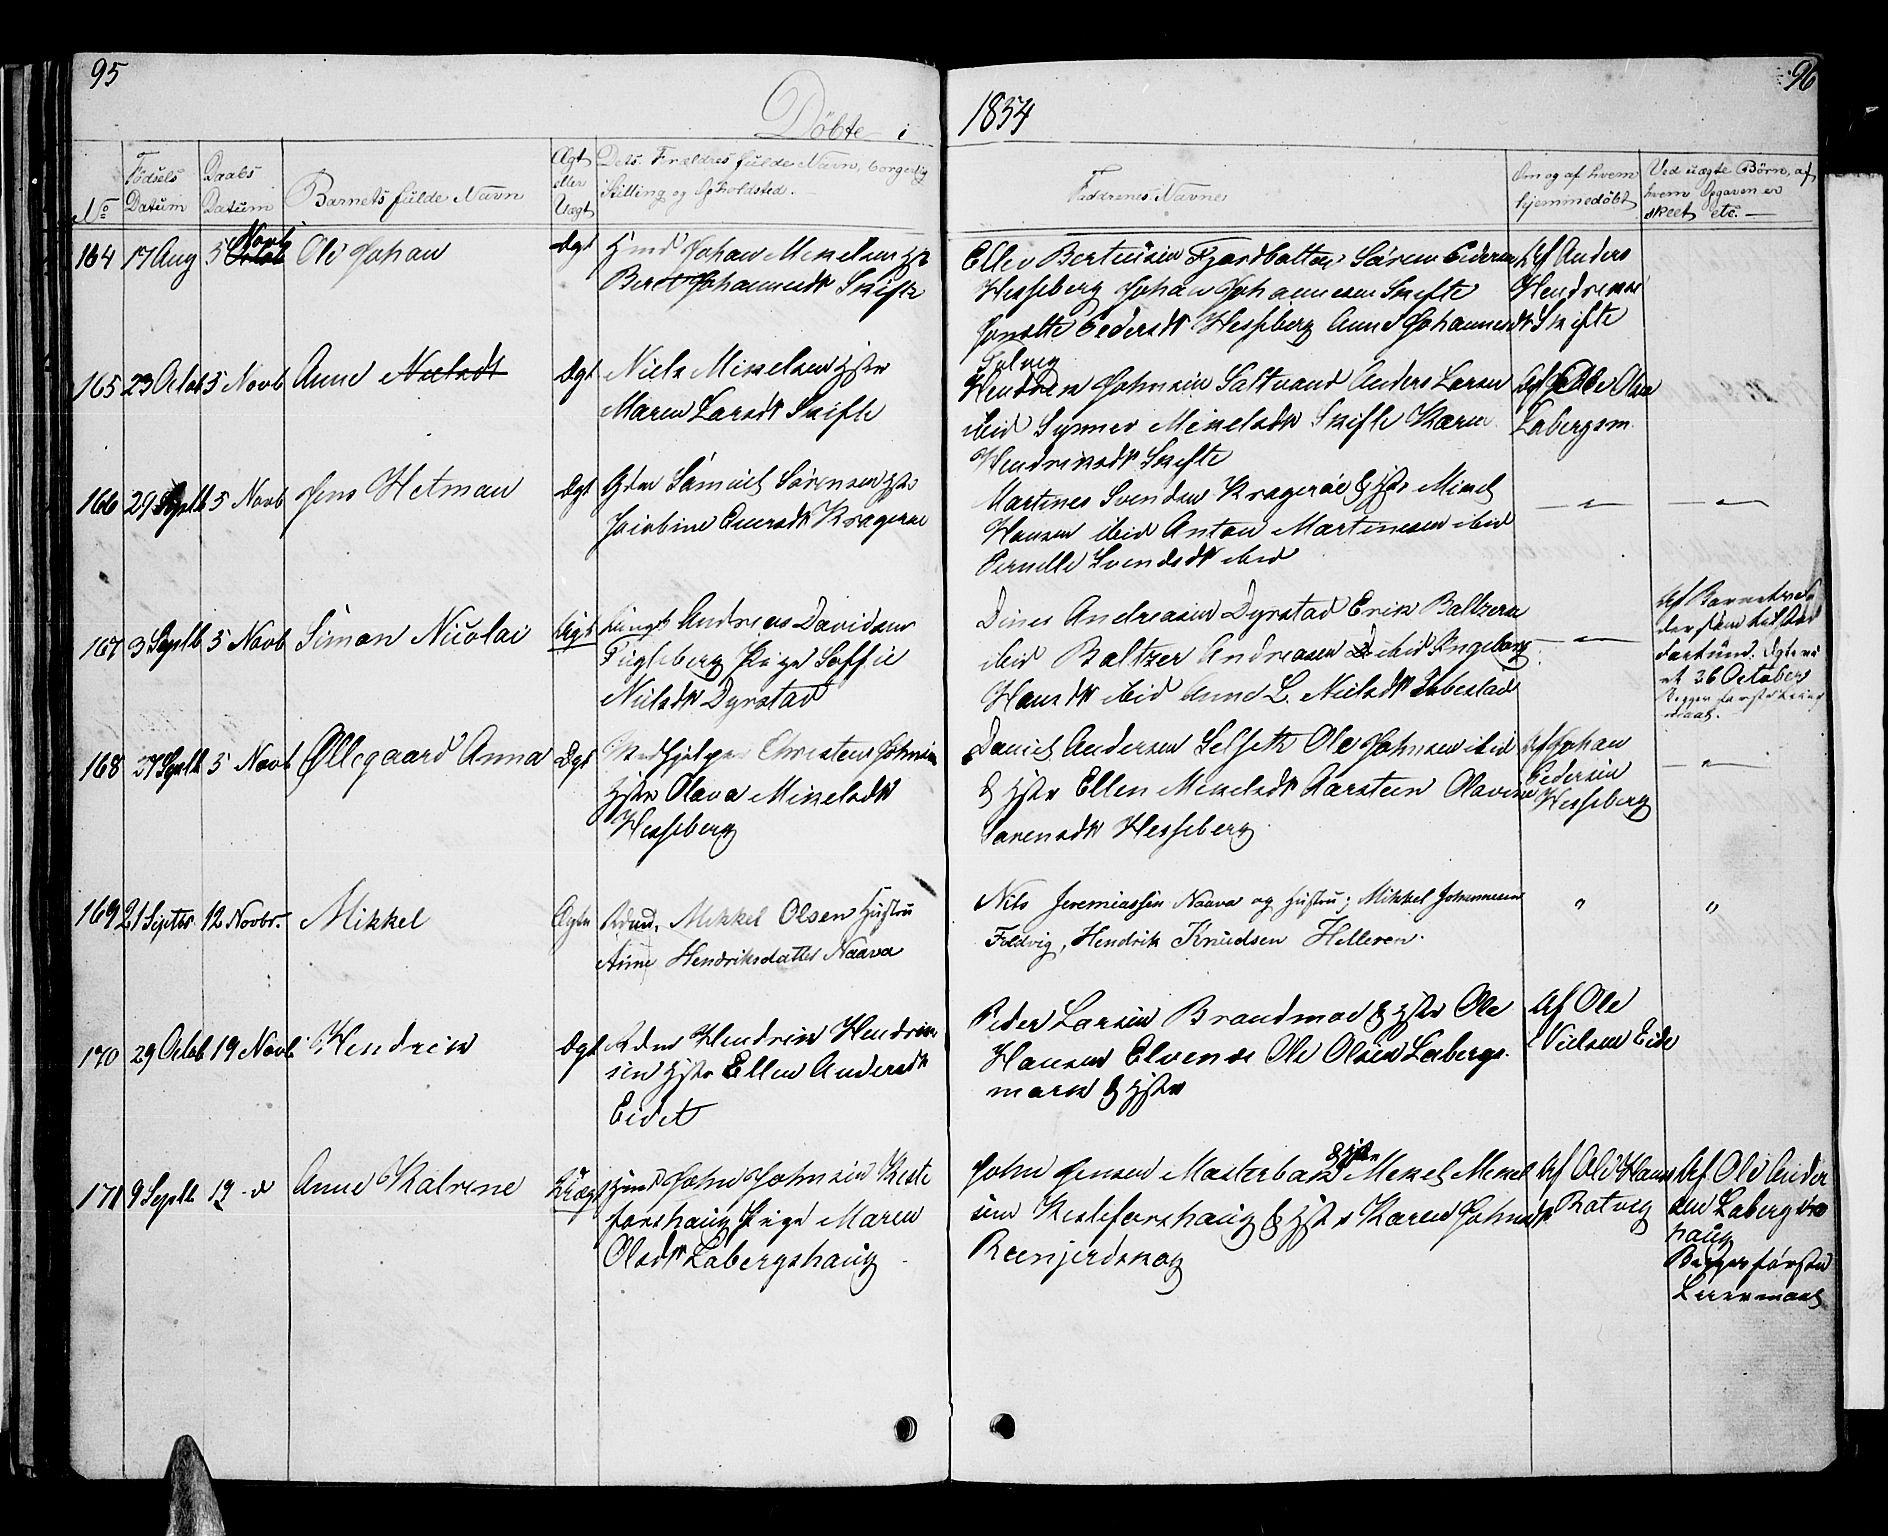 95
96
Döbte i
1854
No
Födsels Datum
Daabs Datum
Barnets fulde Navn
Ægt eller Uægt
Dets Forældres fulde Navn, borgerlig
Stilling og Opholdsted.
Faddrenes Navne
Om og af hvem
hjemmedöbt
Ved uægte Börn, af
hvem Opgaven er
skeet etc.
164 17 Aug 5 Novb Ole Johan Ægt Johan Mikelsen Hst
Beret Johannesdt Skifte
Ellev Berteusen Fjordbotten Sören Pedersen
Hesseberg Johan Johannesen Skifte
Pedersdt Hesseberg Anne Johannesdt
Solveg
Af Anders
Hendriksen
Skifte
165 23 Octob 5 Novb Anne Nielsdt Ægt Niels Mikelsen Hstr
Maren Larsdt Skifte
Hendrik Johnsen Saltvand Anders Larsen
ibid Synnev Mikelsdt Skifte Karen
Hendriksdt Skifte
Af Peder Olsen
Labergsm.
166 29 Septb 5 Novb Jens Hetman Ægt Gdm Samuel Sörensen Hst
Jacobine Eversdt Kragerøe
Martines Svendsen Kragerøe & Hst Mikel
Hansen ibid Anton Martinesen ibid
Pernelle Svendsdt ibid
— " —
— " —
167 3 Septb 5 Novb Simon Nicolai Uægt Ungk Andreas Davidsen
Fugleberg Pige Soffie
Nielsdt Dyrstad
Dines Andreasen Dyrstad Erik Baltzersen
ibid Baltzer Andreasen ibid Ingeborg
Hansdt ibid Anne L. Nielsdt Ibbestad
— " —
Af Barnets Fa
der som tilstod
et 26 October
Begges første Leier
maal.
168 27 Septb 5 Novb Øllegaard Anna Ægt Medhjelper Christen Johnsen
Hstr Olava Mikelsdt
Hesseberg
Daniel Andersen Selseth Ole Johnsen ibid
& Hstr Ellen Mikelsdt Aarsteen Olavine
Sorensdt Hesseberg
Af Johan
Pedersen
Hesseberg
— " —
169 21 Septbr 12 Novbr. Mikkel Ægte Mikkel Olsen Hustru
Anne Hendriksdatter Naava
Nils Jeremiassen Naava og Hustru; Mikkel Johannesen
Foldvig, Hendrik Knudsen Helleren.
"
"
170 29 Octob 19 Novb Hendrik Ægt Hendrik Hendrik
sen Hstr Ellen Andersdt
Eidet
Peder Larsen Brandmoe & Hstr Ole
Hansen Elvenes Ole Olsen Labergs
mark & Hstr
Af Ole
Nielsen Eide
171 9 Septb 19 d Anne Katrine Uægt John Johnsen Keste
forshaug Pige Maren
Olsdt Labergshaug
John Jensen Masterbak & Hstr Mikel Mikel
sen Kesteforshaug & Hstr Karen Johnsdt
Reenjerdskog
Af Ole Hans
Rotveg
Af Ole Ander
sen Labergs
haug
Begges første
Leiermaal